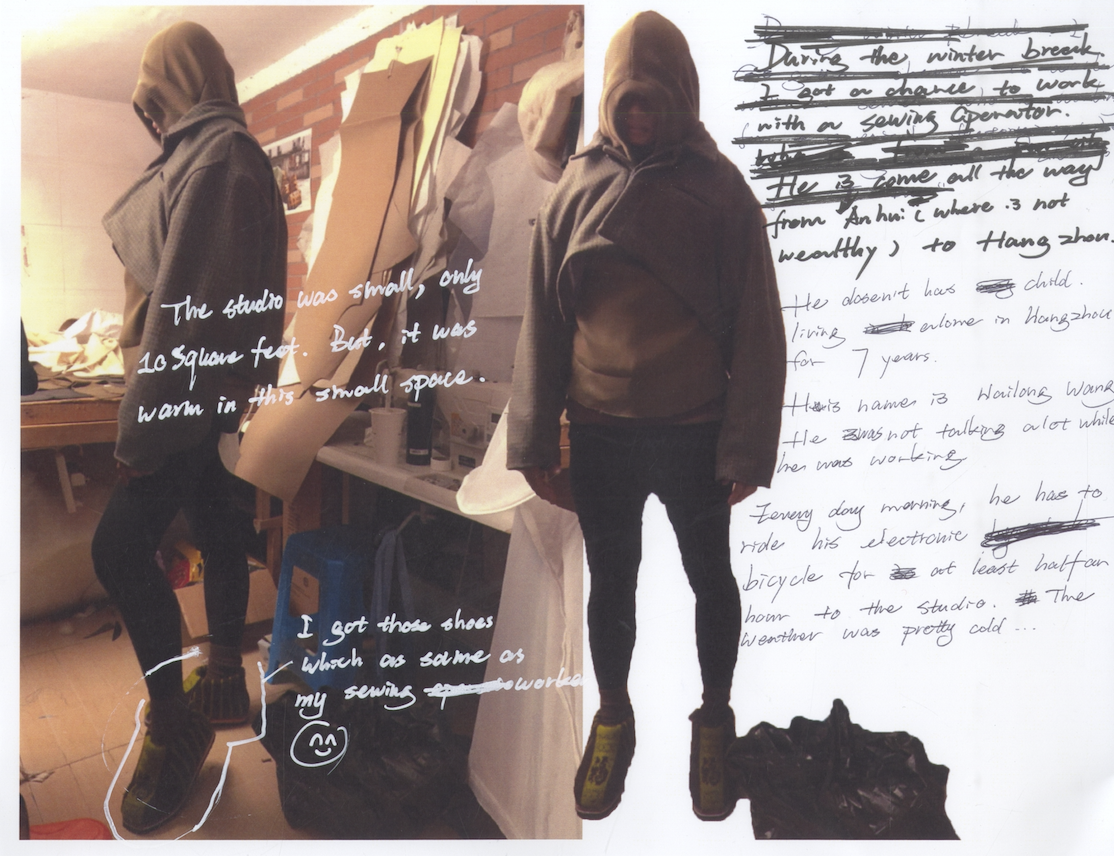 The studio was small, only
10 Square feet. But, it was
warm in this small space.
I got those shoes
which as same as
my sewing worke
During the winter break
I got a chance to work
with a sewing Operator.
He is come all the way
from Anhui ( where is not
wealthy ) to Hangzhou.
He dosen't has child.
living alone in Hangzhou
for 7 years.
His name is Hailong Wang
He was not talking a lot while
he was working
Every day morning, he has to
ride his electronic
bicycle for at least half an
hour to the studio. The
weather was pretty cold ...